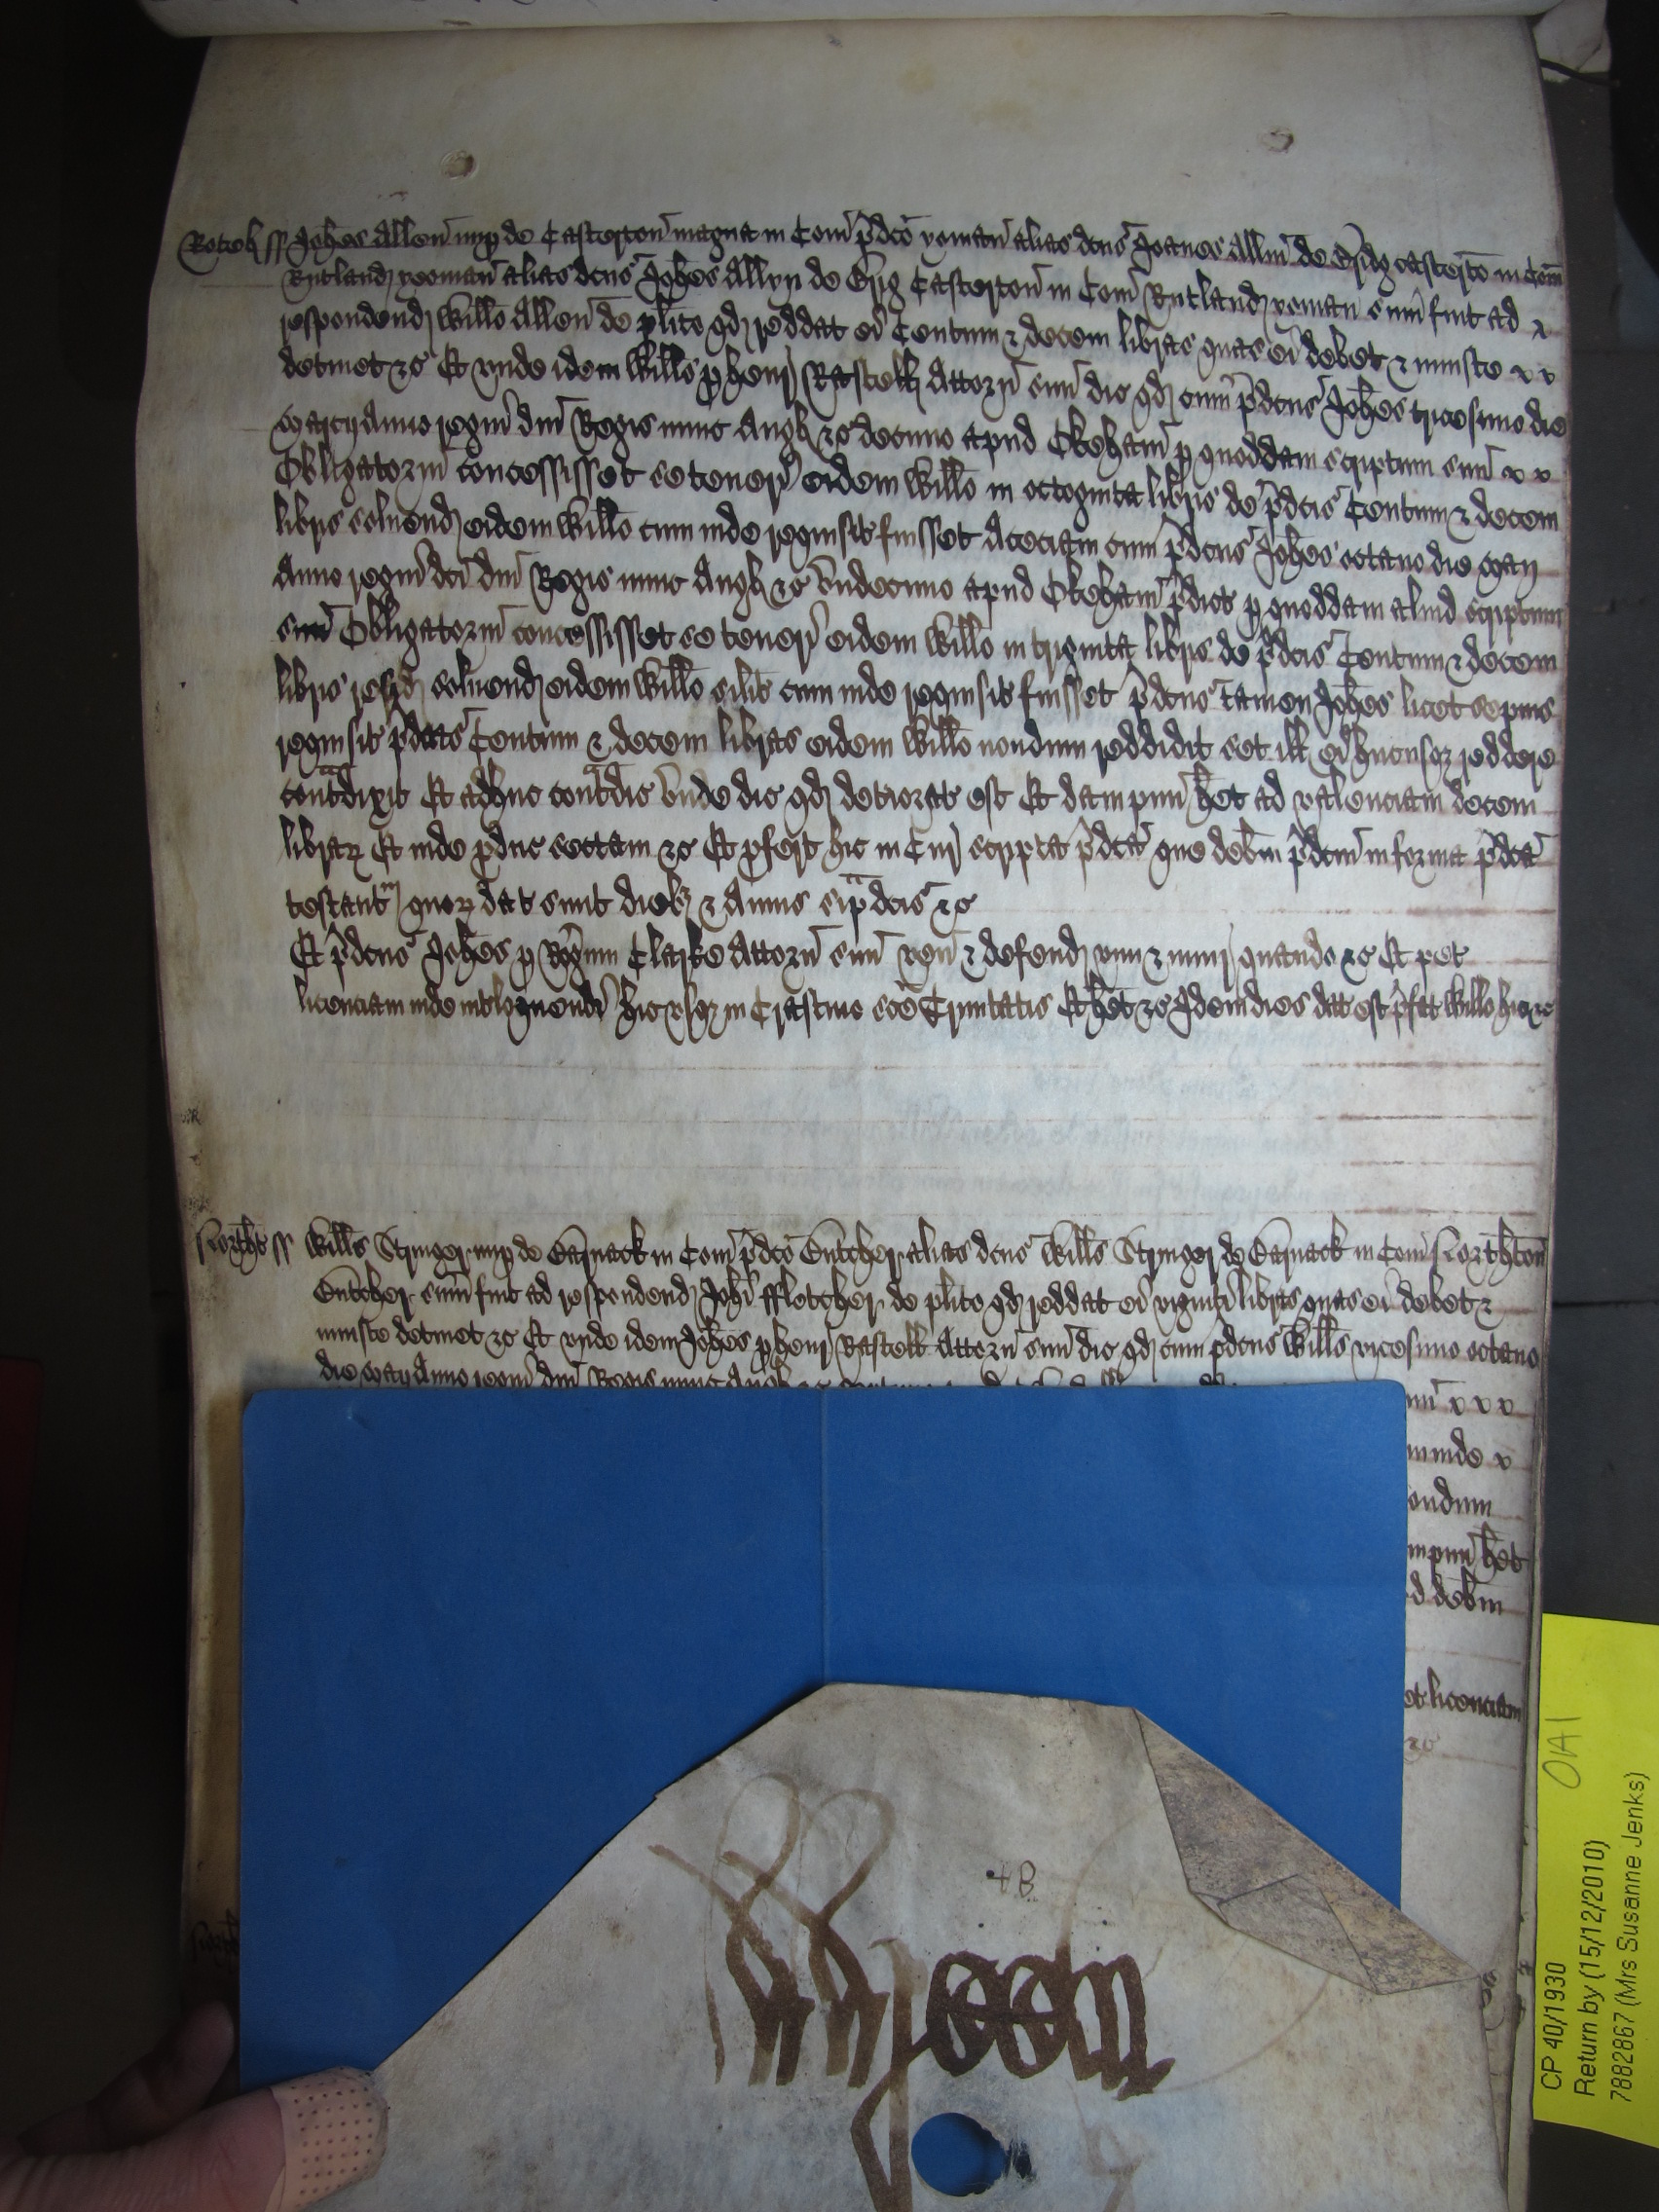 Roteɫ ss Joħes Allen nup de Casterton magna in Com̄ p̄dc̄o yoman alias dc̄us Joanes Allin de casterto in Com̄
Rutland yeoman alias dc̄us Joħes Allyn de Casterton in Com̄ Rutland yoman sum̄ fuit ad
respondend Willo Allen de plito qd reddat ei Centum & decem libras quas ei debet & iniuste
detinet &c Et unde idem Willus p henr Rastell Attorn suu dic qd cum p̄dc̄us Joħes tricesimo die
Marcij Anno regni dni Regis nunc Angɫ &c decimo apud Okeham p quoddam scriptum suu
Obligatoriu concessisset se teneri eidem Willo in octoginta libris de p̄dc̄is Centum & decem
libris soluend eidem Willo cum inde requisit fuisset Aceciam cum p̄dc̄us Joħes octauo die Maij
Anno regni dc̄i dni Regis nunc Angɫ &c vndecimo apud Okeham p̄dict p quoddam aliud scriptum
suu Obligatoriu concessisset se teneri eidem Willo in triginta libris de p̄dc̄is Centum & decem
libris resid soluend eidem Willo silit cum inde requisit fuisset p̄dc̄us tamen Joħes licet sepius
requisit p̄dc̄as Centum & decem libras eidem Willo nondum reddidit set itt ei hucusq reddere
contradixit Et adhuc contradic vnde dic qd deteriorat est Et dampnu het ad valenciam decem
librar Et inde pduc sectam &c Et pfert hic in Cur scripta p̄dc̄a que debm p̄dc̄m in forma p̄dc̄a
testant quor dat sunt dieb & Annis sup̄dc̄is &c
Et p̄dc̄us Joħes p Clarke Attorn suu ven & defend vim & iniur quando &c Et pet
licenciam inde inloquendi hic vsq in Crastino sc̄e Trinitatis Et het &c Idem dies dat est p̄fat Willo hic &c
Northt ss Willus Stringer nup de Barnack in Com̄ p̄dc̄o Butcher alias dc̄us Willus Stringer de Barnack in Com̄ Northton
Butcher sum̄ fuit ad respondend Johi ffletcher de plito qd reddat ei viginti libras quas ei debet &
iniuste detinet &c Et vnde idem Joħes p henr Rastell Attorn suu dic qd cum p̄dc̄us Willus vicesimo octauo
die Maij Anno regni dni Regis nunc Angɫ &c
inde
ondum
mpnu het
d debm
et licenciam
&c
+B
CP 40/1930
Return by (15/12/2010)
7882867 (Mrs Susanne Jenks)